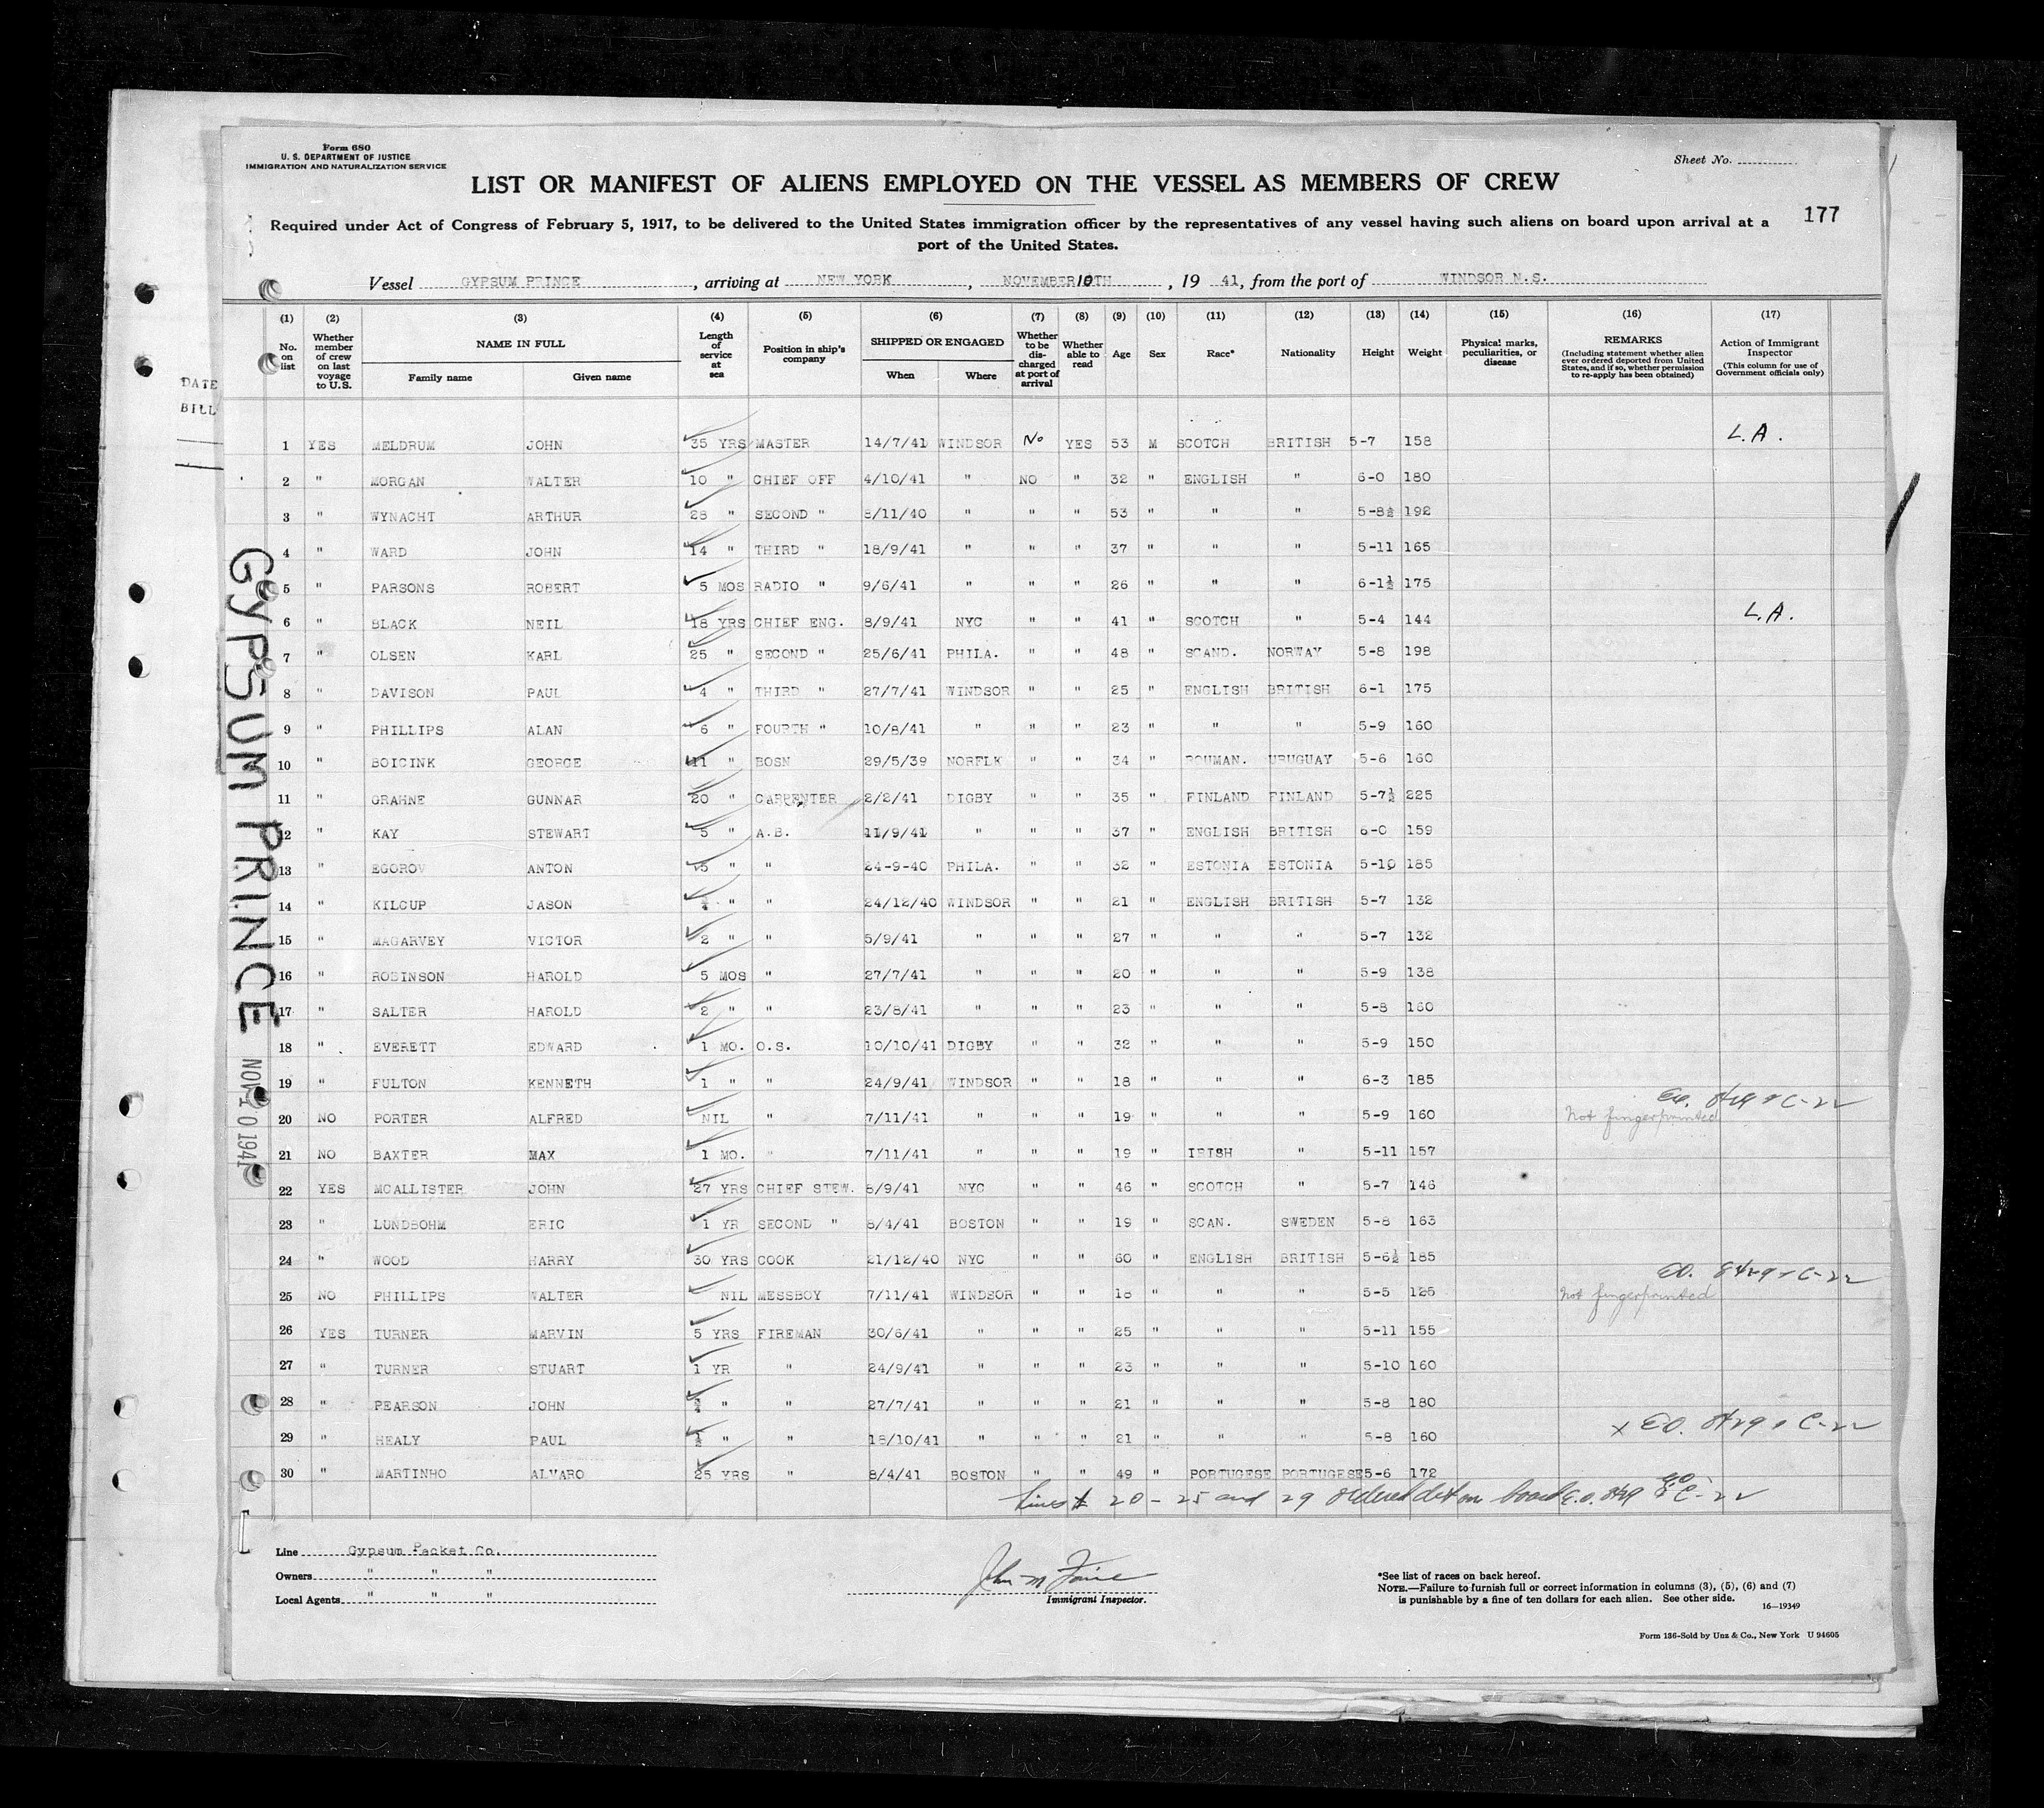 Form 680
U. S. DEPARTMENT OF JUSTICE
IMMIGRATION AND NATURALIZATION SERVICE
Sheet No.
LIST OR MANIFEST OF ALIENS EMPLOYED ON THE VESSEL AS MEMBERS OF CREW
177
Required under Act of Congress of February 5, 1917, to be delivered to the United States immigration officer by the representatives of any vessel having such aliens on board upon arrival at a
port of the United States.
Vessel GYPSUM PRINCE, arriving at NEW YORK, NOVEMBER 10TH, 19 41, from the port of WINDSOR N.S.
(1) (2) (3) (4) (5) (6) (7) (8) (9) (10) (11) (12) (13) (14) (15) (16) (17)
No. on list
Whether member of crew on last voyage to U.S.
NAME IN FULL
Family name
Given name
Length of service at sea
Position in ship's company
SHIPPED OR ENGAGED
When
Where
Whether to be discharged at port of arrival
Whether able to read
Age
Sex
Race*
Nationality
Height
Weight
Physical marks, peculiarities, or disease
REMARKS
(Including statement whether alien ever ordered deported from United States, and if so, whether permission to re-apply has been obtained)
Action of Immigrant Inspector
(This column for use of Government officials only)
DATE
BILL
1 YES MELDRUM JOHN 35 YRS MASTER 14/7/41 WINDSOR No YES 53 M SCOTCH BRITISH 5-7 158 L.A.
2 " MORGAN WALTER 10 " CHIEF OFF 4/10/41 " NO " 32 " ENGLISH " 6-0 180
3 " WYNACHT ARTHUR 28 " SECOND " 8/11/40 " " " 53 " " " 5-8½ 192
4 " WARD JOHN 14 " THIRD " 18/9/41 " " " 37 " " " 5-11 165
5 " PARSONS ROBERT 5 MOS RADIO " 9/6/41 " " " 26 " " " 6-1½ 175
6 " BLACK NEIL 18 YRS CHIEF ENG. 8/9/41 NYC " " 41 " SCOTCH " 5-4 144 L.A.
7 " OLSEN KARL 25 " SECOND " 25/6/41 PHILA. " " 48 " SCAND. NORWAY 5-8 198
8 " DAVISON PAUL 4 " THIRD " 27/7/41 WINDSOR " " 25 " ENGLISH BRITISH 6-1 175
9 " PHILLIPS ALAN 6 " FOURTH " 10/8/41 " " " 23 " " " 5-9 160
10 " BOICINK GEORGE 11 " BOSN 29/5/39 NORFLK " " 34 " ROUMAN. URUGUAY 5-6 160
11 " GRAHNE GUNNAR 20 " CARPENTER 2/2/41 DIGBY " " 35 " FINLAND FINLAND 5-7½ 225
12 " KAY STEWART 5 " A.B. 11/9/41 " " " 37 " ENGLISH BRITISH 6-0 159
13 " EGOROV ANTON 5 " " 24-9-40 PHILA. " " 32 " ESTONIA ESTONIA 5-10 185
14 " KILCUP JASON " " 24/12/40 WINDSOR " " 21 " ENGLISH BRITISH 5-7 132
15 " MAGARVEY VICTOR 2 " " 5/9/41 " " " 27 " " " 5-7 132
16 " ROBINSON HAROLD 5 MOS " 27/7/41 " " " 20 " " " 5-9 138
17 " SALTER HAROLD 2 " " 23/8/41 " " " 23 " " " 5-8 160
18 " EVERETT EDWARD 1 MO. O.S. 10/10/41 DIGBY " " 32 " " " 5-9 150
19 " FULTON KENNETH 1 " " 24/9/41 WINDSOR " " 18 " " " 6-3 185
20 NO PORTER ALFRED NIL " 7/11/41 " " " 19 " " " 5-9 160 Not fingerprinted
21 NO BAXTER MAX 1 MO. " 7/11/41 " " " 19 " IRISH " 5-11 157
22 YES MCALLISTER JOHN 27 YRS CHIEF STEW. 8/9/41 NYC " " 46 " SCOTCH " 5-7 146
23 " LUNDBOHM ERIC 1 YR SECOND " 8/4/41 BOSTON " " 19 " SCAN. SWEDEN 5-8 163
24 " WOOD HARRY 30 YRS COOK 21/12/40 NYC " " 60 " ENGLISH BRITISH 5-6½ 185
25 NO PHILLIPS WALTER NIL MESSBOY 7/11/41 WINDSOR " " 18 " " " 5-5 125 Not fingerprinted E.O. 8429 & C-22
26 YES TURNER MARVIN 5 YRS FIREMAN 30/6/41 " " " 25 " " " 5-11 155
27 " TURNER STUART 1 YR " 24/9/41 " " " 23 " " " 5-10 160
28 " PEARSON JOHN " " 27/7/41 " " " 21 " " " 5-8 180
29 " HEALY PAUL ½ " " 18/10/41 " " " 21 " " " 5-8 160 x E.O. 8429 & C-22
30 " MARTINHO ALVARO 25 YRS " 8/4/41 BOSTON " " 49 " PORTUGESE PORTUGESE 5-6 172
Lines # 20 - 25 and 29 ordered det on board E.O. 8429 & C-22
GYPSUM PRINCE
NOV 10 1941
Line Gypsum Packet Co.
Owners " " "
Local Agents " " "
Immigrant Inspector.
*See list of races on back hereof.
NOTE.—Failure to furnish full or correct information in columns (3), (5), (6) and (7)
is punishable by a fine of ten dollars for each alien. See other side.
16—19349
Form 136-Sold by Unz & Co., New York U 94605